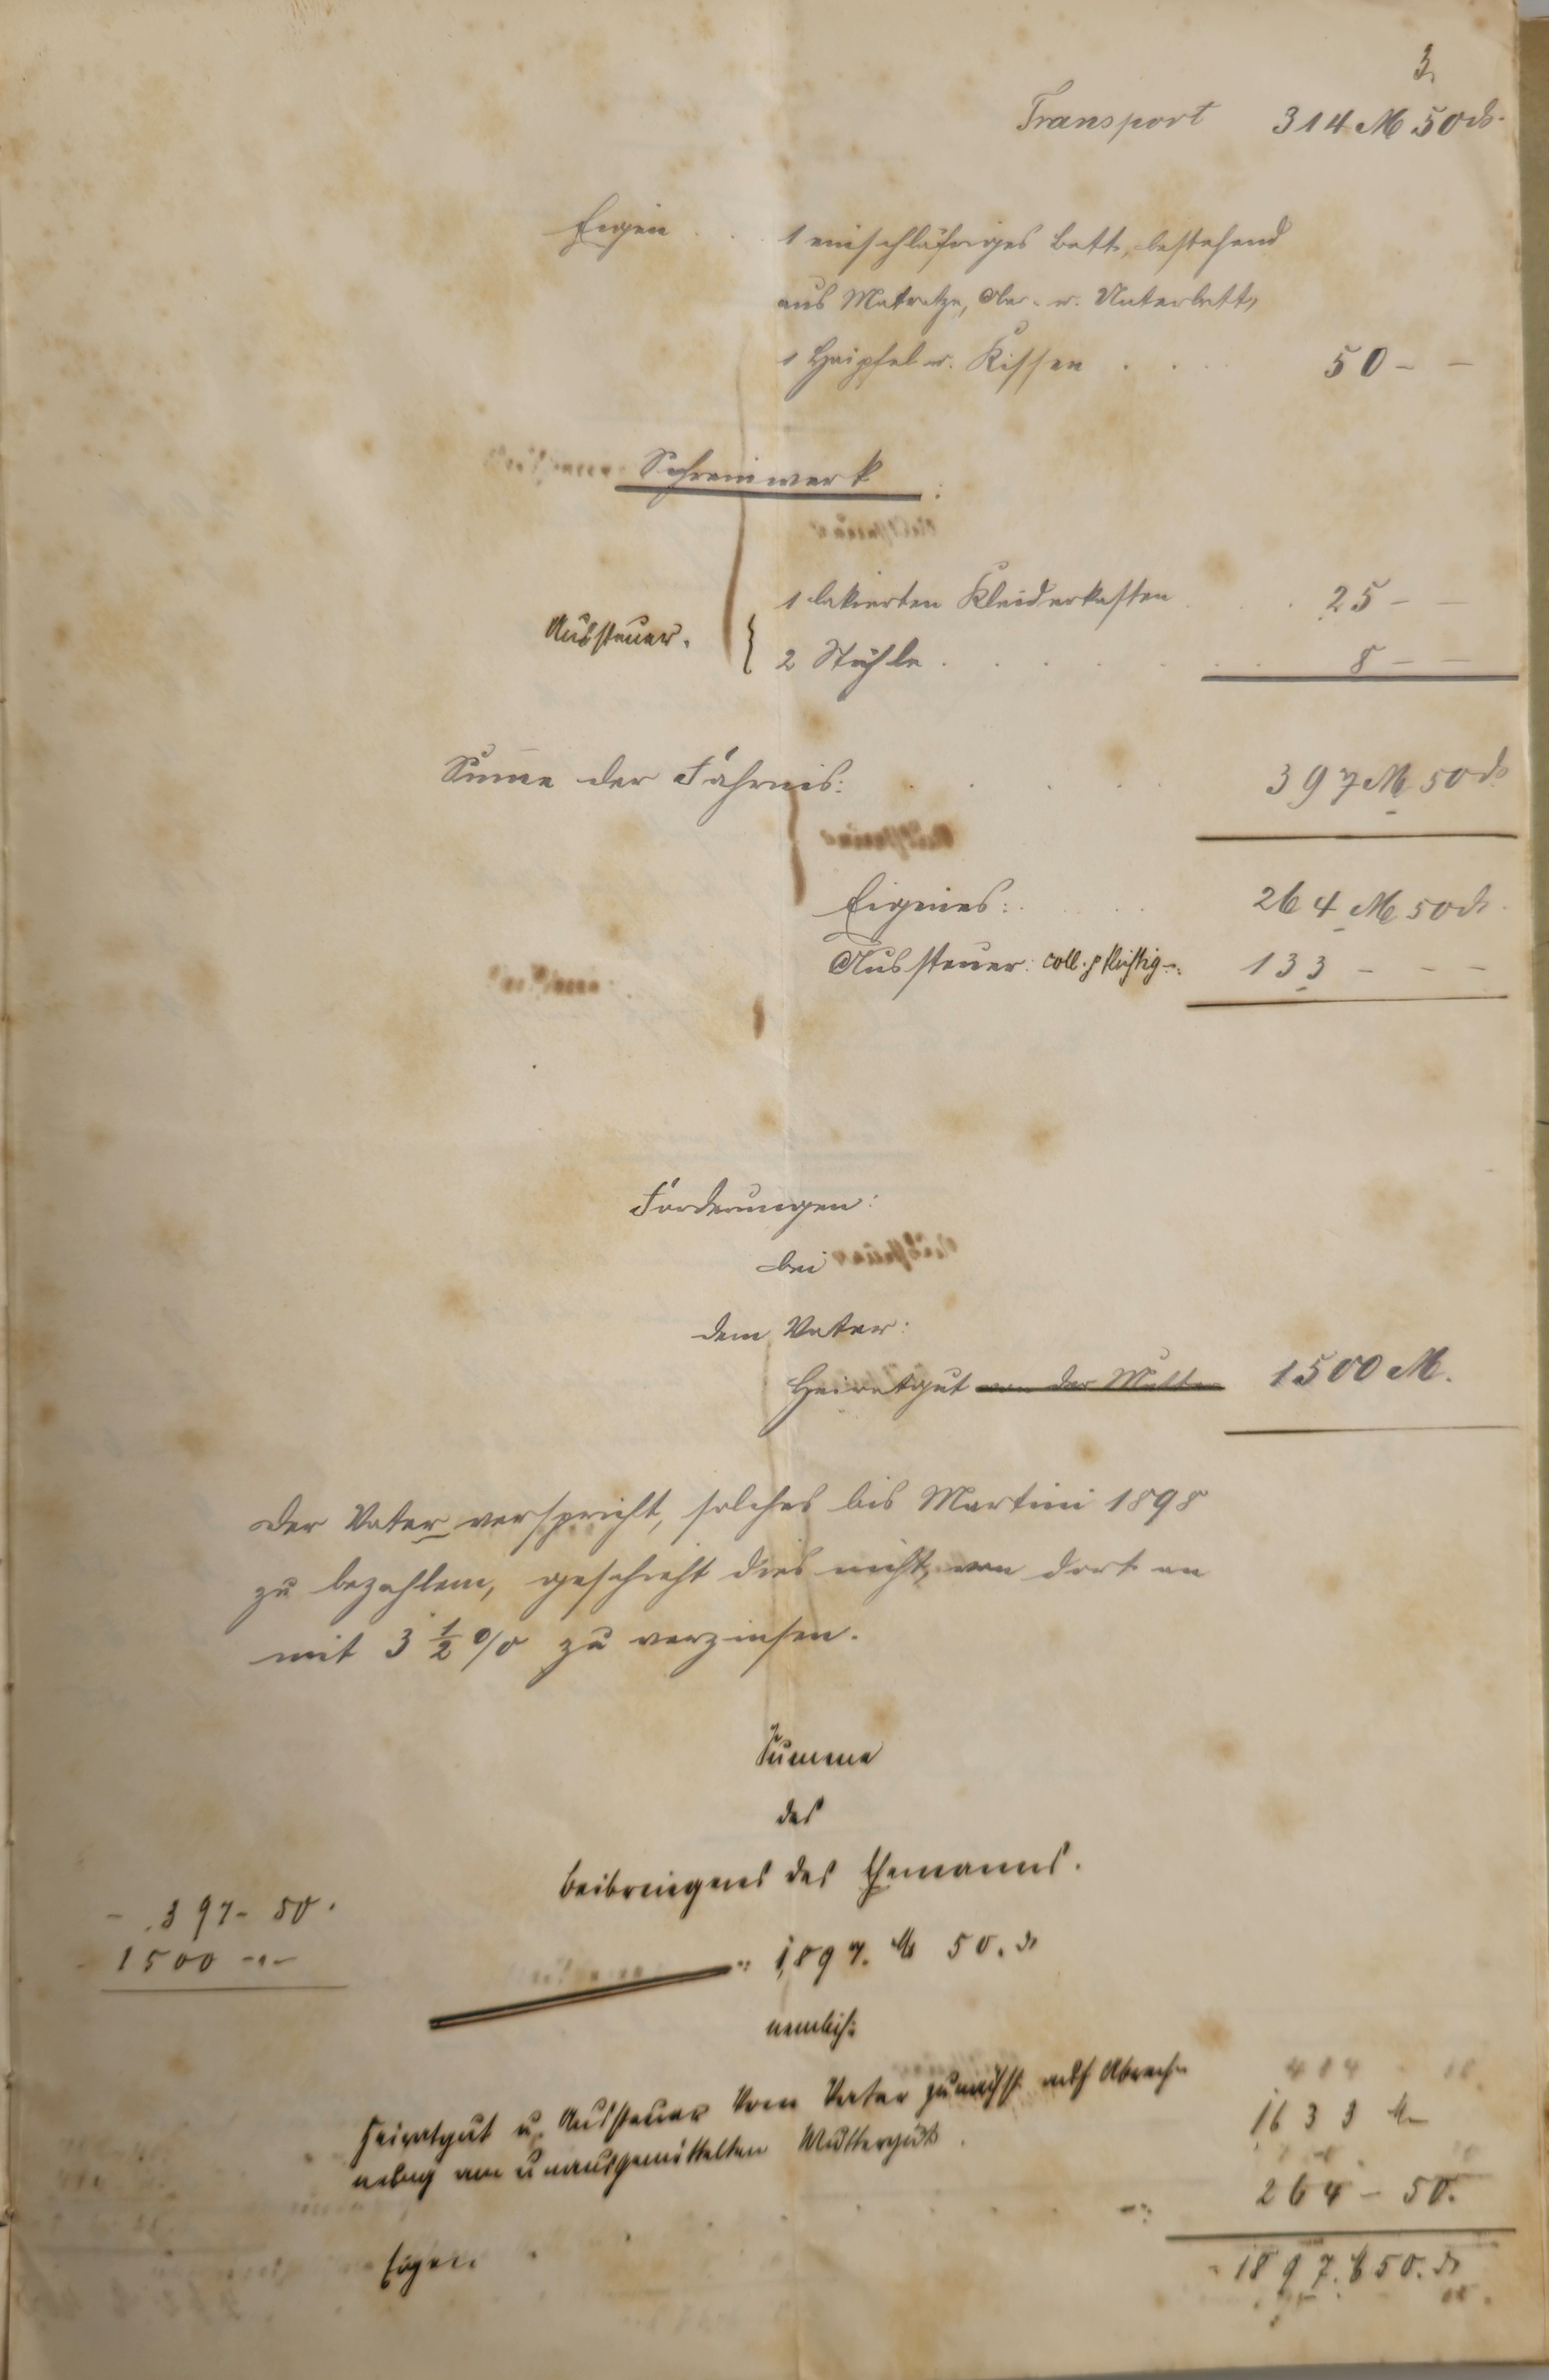 3.
Transport 314 M 50 ₰.
Eigen . . 1 einschläfriges Bett, bestehend
aus Matratze, Ober- u. Unterbett,
1 Haipfel u. Kissen . . . 50 – –
Schreinwerk :
Aussteuer. { 1 lakierten Kleiderkasten . . . 25 – –
2 Stühle . . . . . . 8 – –
Summe der Fahrnis: . . . . 397 M 50 ₰
Eigenes: . . . 264 M 50 ₰.
Aussteuer: coll. pflichtig –: 133 – – –
Forderungen:
bei
dem Vater:
Heiratgut von der Mutter 1500 M.
Der Vater verspricht, solches bis Martini 1898
zu bezahlen, geschieht dies nicht, von dort an
mit 3 1/2 % zu verzinsen.
Summe
des
Beibringens des Ehemanns.
– . 397 – 50 .
1500 –.–
: 1,897. M 50. ₰
nemlich:
Heiratgut u. Aussteuer vom Vater zunächst auf Abrech-
nung am unausgemittelten Muttergut . 1633 M –
Eigen . . . . . . –: 264 – 50.
1897. M 50. ₰